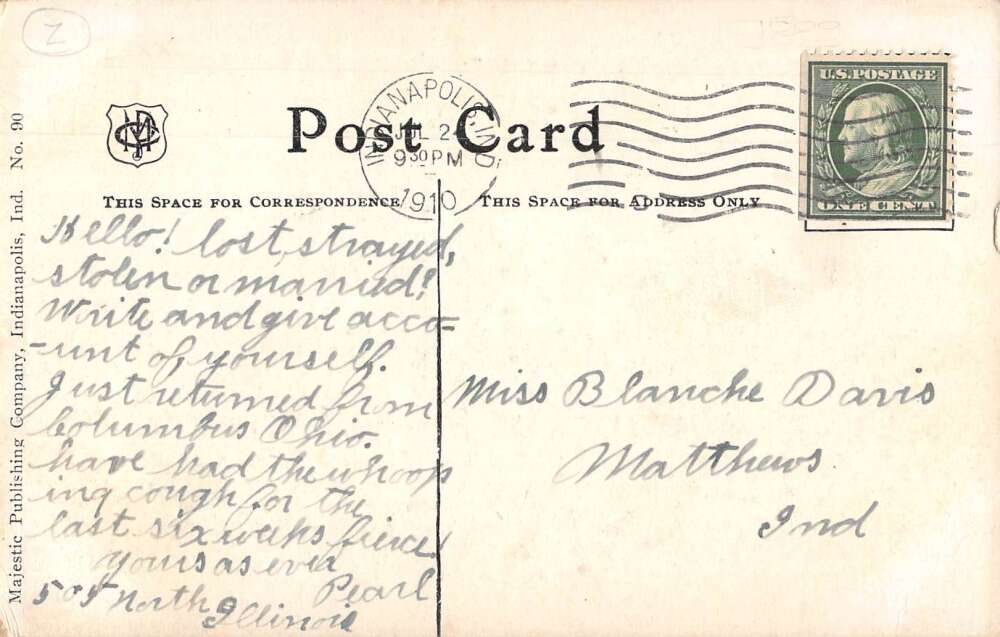 Z
1500
U.S. POSTAGE
ONE CENT
INDIANAPOLIS, IND.
JUL 2
9 30 PM
1910
Post Card
THIS SPACE FOR CORRESPONDENCE
THIS SPACE FOR ADDRESS ONLY
Majestic Publishing Company, Indianapolis, Ind. No. 90
Hello! lost, strayed,
stolen or married!
Write and give acco-
-unt of yourself.
Just returned from
Columbus Ohio.
have had the whoop
ing cough for the
last six weeks fierce!
yours as ever
Pearl
505 North Illinois
Miss Blanche Davis
Matthews
Ind